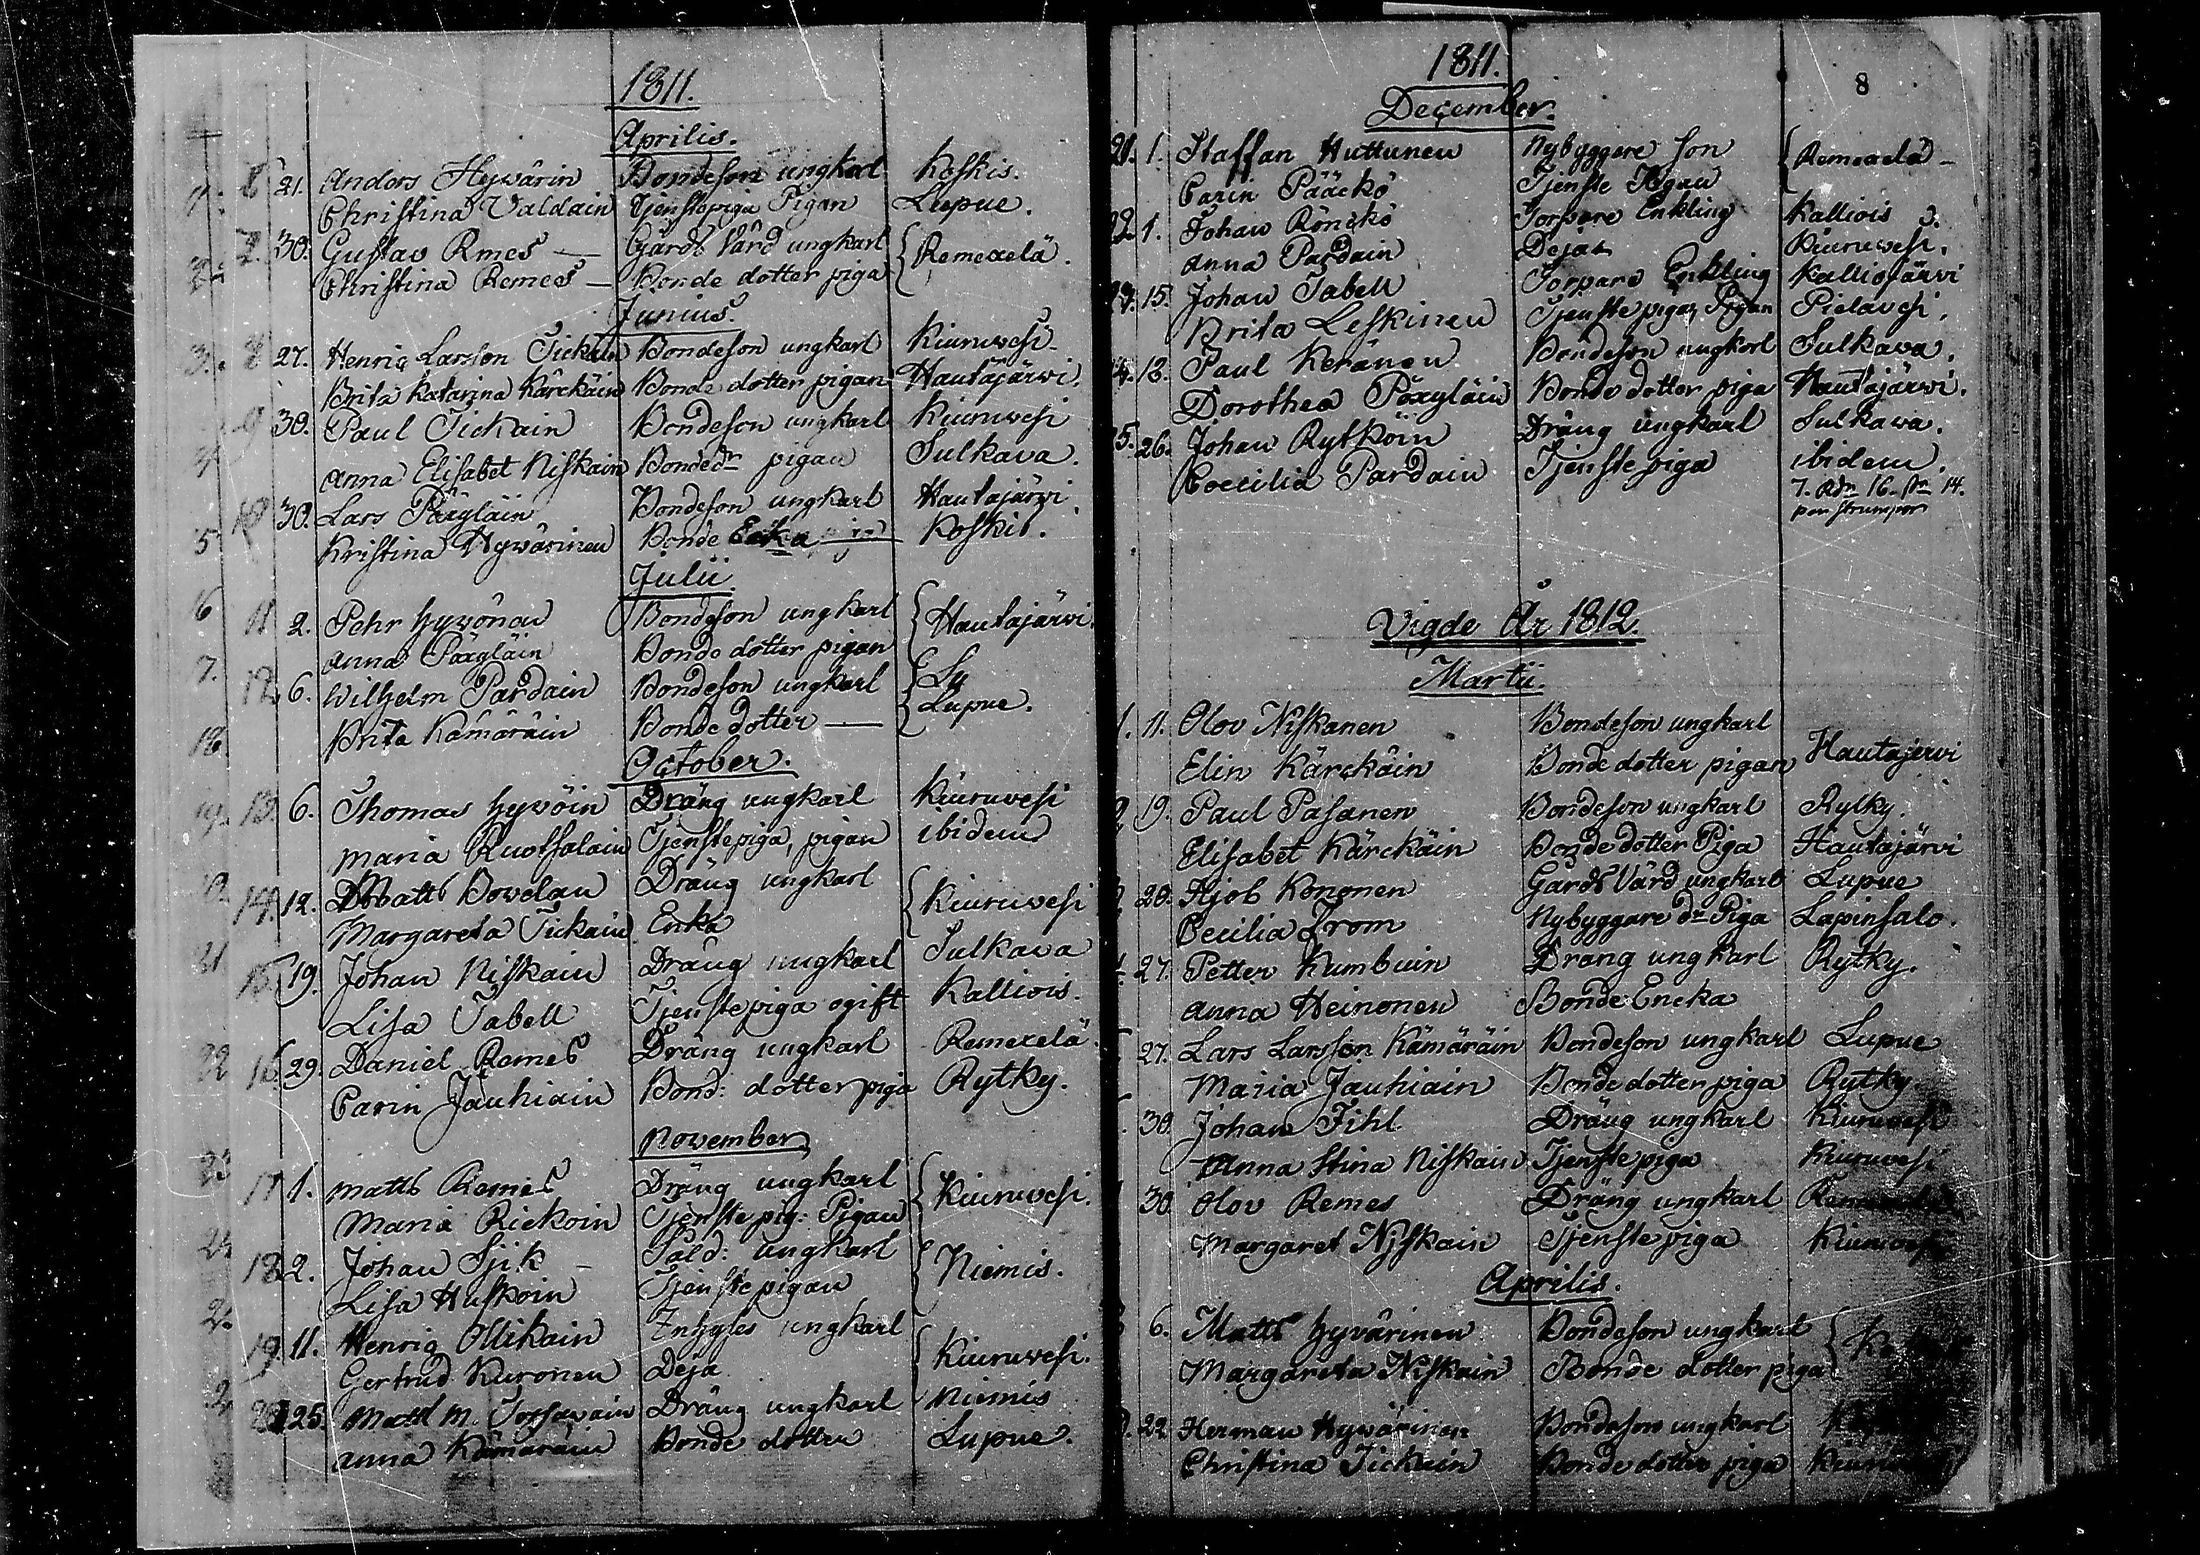 1811.
Aprilis.
8 21. Anders Hyvärin Bondeson ungkarl Koskis.
Christina Valdain Tjenstepiga Pigan Lupue.
30. Gustav Rmes — Gårds Vård ungkarl Remexelä.
Christina Remes — Bonde dotter piga
Junius.
3. 8 27. Henric Larsson Tickain Bondeson ungkarl Kiuruvesi
Brita Katarina Kärckäin Bonde dotter pigan Hautajärvi.
9 30. Paul Tickain Bondeson ungkarl Kiuruvesi
Anna Elisabet Niskain Bondedr pigan Sulkava.
10 30. Lars Pöxyläin Bondeson ungkarl Hautajärvi.
5 Kristina Hyvärinen Bonde Enka Koskis.
Julii
6 11 2. Pehr Hyvönen Bondeson ungkarl Hautajärvi.
Anna Pöxyläin Bonde dotter pigan
7. 12. 6. Wilhelm Pardain Bondeson ungkarl Lu
Brita Kämäräin Bonde dotter — Lupue.
October.
13. 6. Thomas Hyvöin Dräng ungkarl Kiuruvesi
Maria Ruotsalain Tjenstepiga, pigan ibidem
14. 12. Matts Bovelan Dräng ungkarl Kiuruvesi
Margareta Tickain Enka
21 15. 19. Johan Niskain Dräng ungkarl Sulkava
Lisa Tabell Tjenstepiga ogift Kalliois.
22 16. 29. Daniel Remes Dräng ungkarl Remexelä.
Carin Jauhiain Bond: dotter piga Rytky.
November
17 1. Matts Remes Dräng ungkarl Kiuruvesi.
Maria Rickoin Tjenste pig: Pigan
18 2. Johan Sjik — Sold: ungkarl Niemis.
Lisa Huskoin Tjenstepigan
19 11. Henric Ollikain Inhyses ungkarl Kiuruvesi.
Gertrud Kuronen Deja
25. Matts M. Torsavain Dräng ungkarl Niemis
Anna Kämäräin Bonde dotter Lupue.
1811.
8
December.
21. 1. Staffan Huttunen Nybyggare son Remexelä —
Carin Pääckö Tjenste Pigan
22 1. Johan Rönckö Torpare Enkling Kalliois
Anna Pardain Dejan Kiuruvesi.
15. Johan Tabell Torpare Enkling Kalliojärvi
Brita Leskinen Tjenste piga, Pigan Pielavesi.
Paul Keränen Bondeson ungkarl Sulkava.
Dorothea Pöxyläin Bonde dotter piga Hautajärvi.
26. Johan Rytköin Dräng ungkarl Sulkava.
Coecilia Pardain Tjenste piga ibidem.
7. Rdr 16. 14.
par strumpor
Vigde År 1812.
Martii.
1. 11. Olov Niskanen Bondeson ungkarl
Elin Kärckäin Bonde dotter pigan Hautajervi
19. Paul Pasanen Bondeson ungkarl Rytky.
Elisabet Kärckäin Bonde dotter Piga Hautajärvi
20. Hjob Kononen Gårds Värd ungkarl Lupue
Cecilia From Nybyggare dr Piga Lapinsalo.
27. Petter Kumbuin Dräng ungkarl Rytky.
Anna Heinonen Bonde Encka
27. Lars Larsson Kämäräin Bondeson ungkarl Lupue
Maria Jauhiain Bonde dotter piga Rytky.
30. Johan Fihl Dräng ungkarl Kiuruvesi
Anna Stina Niskain Tjenste piga Kiuruvesi
30 Olov Remes Dräng ungkarl
Margaret Niskain Tjenste piga
Aprilis.
6. Matts Hyvärinen Bondeson ungkarl
Margareta Niskain Bonde dotter piga
22 Herman Hyvärinen Bondeson ungkarl
Christina Tickain Bonde dotter piga